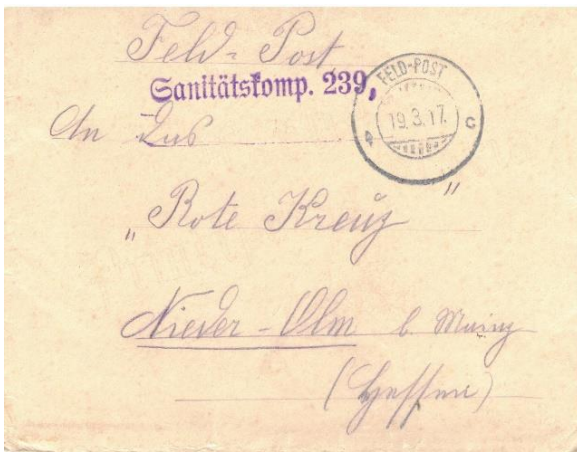 Feld-Post
Sanitätskomp. 239,
FELD-POST
19.3.17.
c
An Das
„Rote Kreuz"
Nieder-Olm b. Mainz
(Hessen)